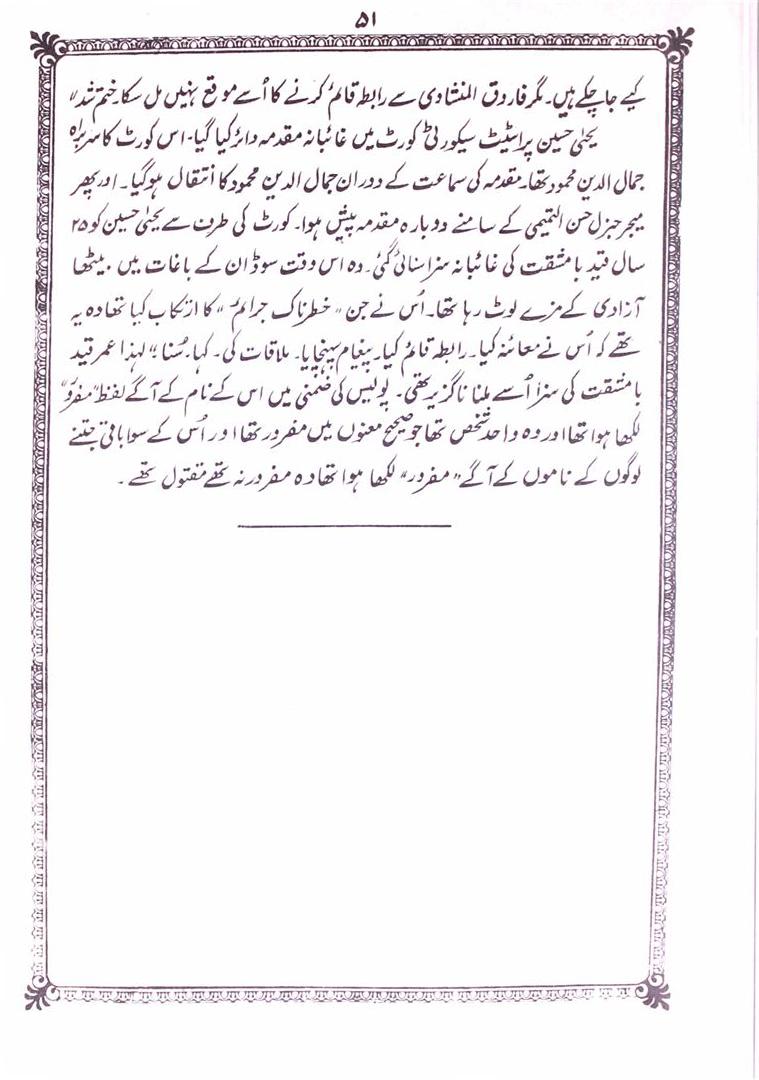 ۵۱
کیے جا چکے ہیں۔ مگر فاروق المنشاوی سے رابطہ قائم کرنے کا اُسے موقع نہیں مل سکا۔ ختم شد"
یحییٰ حسین پر اسٹیٹ سیکورٹی کورٹ میں غائبانہ مقدمہ دائر کیا گیا۔ اس کورٹ کا سربراہ
جمال الدین محمود تھا۔ مقدمہ کی سماعت کے دوران جمال الدین محمود کا انتقال ہو گیا۔ اور پھر
میجر جنرل حسن التمیمی کے سامنے دوبارہ مقدمہ پیش ہوا۔ کورٹ کی طرف سے یحییٰ حسین کو ۲۵
سال قید با مشقت کی غائبانہ سزا سنائی گئی۔ وہ اس وقت سوڈان کے باغات میں بیٹھا
آزادی کے مزے لوٹ رہا تھا۔ اُس نے جن "خطرناک جرائم" کا ارتکاب کیا تھا وہ یہ
تھے کہ اُس نے معائنہ کیا۔ رابطہ قائم کیا۔ پیغام پہنچایا۔ ملاقات کی۔ کہا۔ سُنا"! لہذا عمر قید
با مشقت کی سزا اُسے ملنا ناگزیر تھی۔ پولیس کی ضمنی میں اس کے نام کے آگے لفظ "مفرور"
لکھا ہوا تھا اور وہ واحد شخص تھا جو صحیح معنوں میں مفرور تھا اور اُس کے سوا باقی جتنے
لوگوں کے ناموں کے آگے "مفرور" لکھا ہوا تھا وہ مفرور نہ تھے مقتول تھے۔